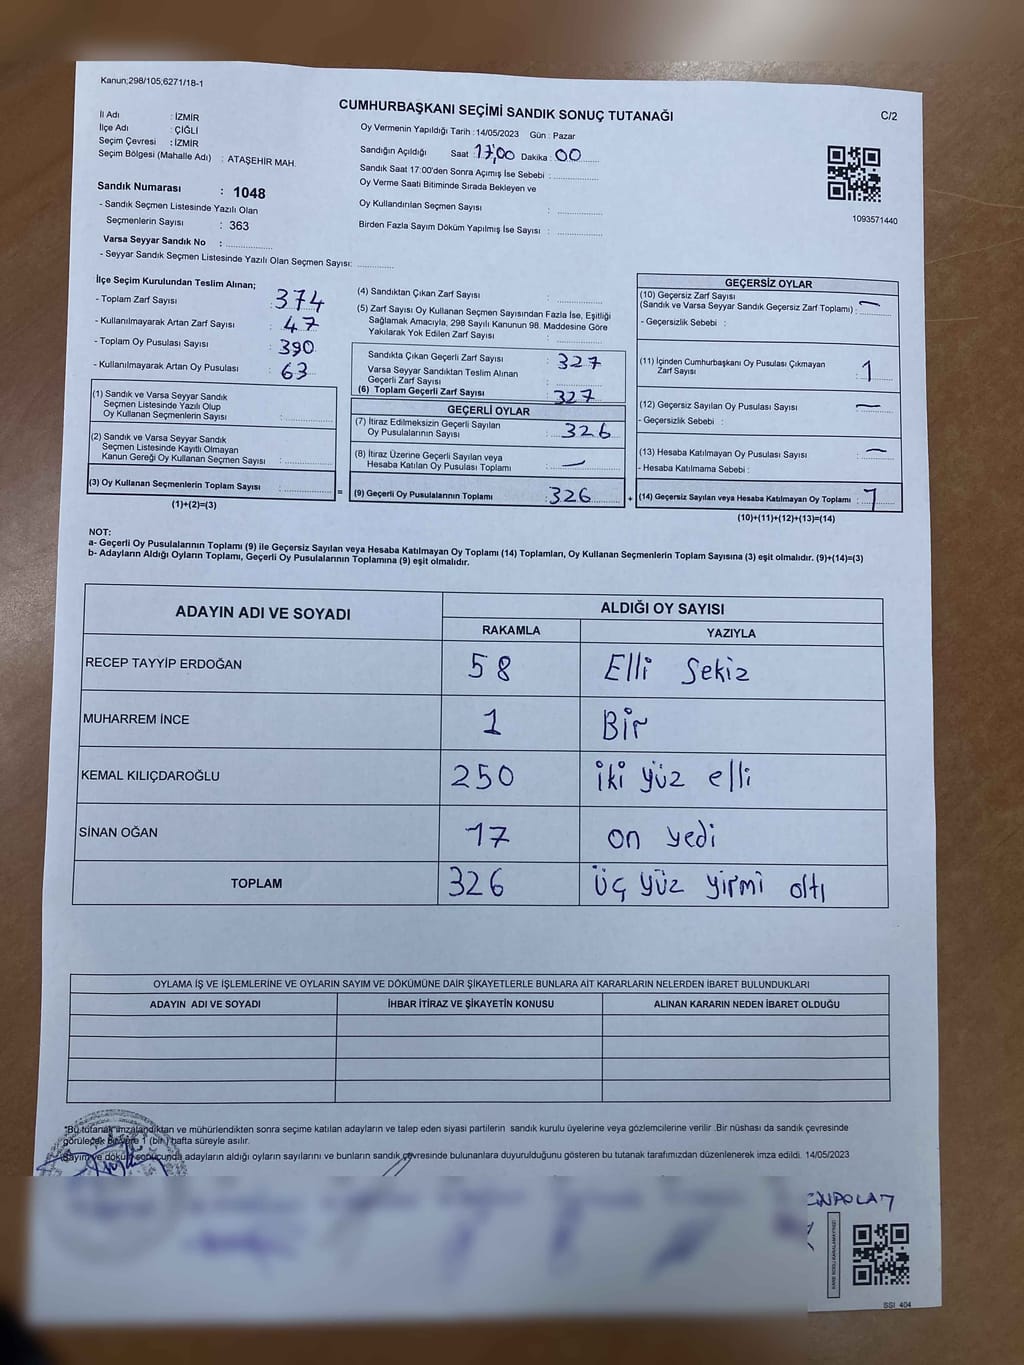 Kanun;298/105,6271/18-1
CUMHURBAŞKANI SEÇİMİ SANDIK SONUÇ TUTANAĞI
C/2
İl Adı : İZMİR
İlçe Adı : ÇİĞLİ
Seçim Çevresi : İZMİR
Seçim Bölgesi (Mahalle Adı) : ATAŞEHİR MAH.
Sandık Numarası : 1048
- Sandık Seçmen Listesinde Yazılı Olan
Seçmenlerin Sayısı : 363
Varsa Seyyar Sandık No : ..............
- Seyyar Sandık Seçmen Listesinde Yazılı Olan Seçmen Sayısı: ............
Oy Vermenin Yapıldığı Tarih : 14/05/2023 Gün : Pazar
Sandığın Açıldığı Saat : 17:00 Dakika : 00
Sandık Saat 17:00'den Sonra Açımış İse Sebebi : ..............
Oy Verme Saati Bitiminde Sırada Bekleyen ve
Oy Kullandırılan Seçmen Sayısı : ..............
Birden Fazla Sayım Döküm Yapılmış İse Sayısı : ..............
1093571440
İlçe Seçim Kurulundan Teslim Alınan;
- Toplam Zarf Sayısı : 374
- Kullanılmayarak Artan Zarf Sayısı : 47
- Toplam Oy Pusulası Sayısı : 390
- Kullanılmayarak Artan Oy Pusulası : 63
(1) Sandık ve Varsa Seyyar Sandık
Seçmen Listesinde Yazılı Olup
Oy Kullanan Seçmenlerin Sayısı : ..............
(2) Sandık ve Varsa Seyyar Sandık
Seçmen Listesinde Kayıtlı Olmayan
Kanun Gereği Oy Kullanan Seçmen Sayısı : ..............
(3) Oy Kullanan Seçmenlerin Toplam Sayısı : ..............
(1)+(2)=(3)
(4) Sandıktan Çıkan Zarf Sayısı : ..............
(5) Zarf Sayısı Oy Kullanan Seçmen Sayısından Fazla İse, Eşitliği
Sağlamak Amacıyla, 298 Sayılı Kanunun 98. Maddesine Göre
Yakılarak Yok Edilen Zarf Sayısı : ..............
Sandıkta Çıkan Geçerli Zarf Sayısı : 327
Varsa Seyyar Sandıktan Teslim Alınan
Geçerli Zarf Sayısı : ..............
(6) Toplam Geçerli Zarf Sayısı : 327
GEÇERLİ OYLAR
(7) İtiraz Edilmeksizin Geçerli Sayılan
Oy Pusulalarının Sayısı : 326
(8) İtiraz Üzerine Geçerli Sayılan veya
Hesaba Katılan Oy Pusulası Toplamı : —
= (9) Geçerli Oy Pusulalarının Toplamı : 326 +
GEÇERSİZ OYLAR
(10) Geçersiz Zarf Sayısı
(Sandık ve Varsa Seyyar Sandık Geçersiz Zarf Toplamı) : —
- Geçersizlik Sebebi :
(11) İçinden Cumhurbaşkanı Oy Pusulası Çıkmayan
Zarf Sayısı : 1
(12) Geçersiz Sayılan Oy Pusulası Sayısı : —
- Geçersizlik Sebebi :
(13) Hesaba Katılmayan Oy Pusulası Sayısı : —
- Hesaba Katılmama Sebebi :
(14) Geçersiz Sayılan veya Hesaba Katılmayan Oy Toplamı : 1
(10)+(11)+(12)+(13)=(14)
NOT:
a- Geçerli Oy Pusulalarının Toplamı (9) ile Geçersiz Sayılan veya Hesaba Katılmayan Oy Toplamı (14) Toplamları, Oy Kullanan Seçmenlerin Toplam Sayısına (3) eşit olmalıdır. (9)+(14)=(3)
b- Adayların Aldığı Oyların Toplamı, Geçerli Oy Pusulalarının Toplamına (9) eşit olmalıdır.
ADAYIN ADI VE SOYADI ALDIĞI OY SAYISI
RAKAMLA YAZIYLA
RECEP TAYYİP ERDOĞAN 58 Elli Sekiz
MUHARREM İNCE 1 Bir
KEMAL KILIÇDAROĞLU 250 iki yüz elli
SİNAN OĞAN 17 on yedi
TOPLAM 326 üç yüz yirmi altı
OYLAMA İŞ VE İŞLEMLERİNE VE OYLARIN SAYIM VE DÖKÜMÜNE DAİR ŞİKAYETLERLE BUNLARA AİT KARARLARIN NELERDEN İBARET BULUNDUKLARI
ADAYIN ADI VE SOYADI İHBAR İTİRAZ VE ŞİKAYETİN KONUSU ALINAN KARARIN NEDEN İBARET OLDUĞU
*Bu tutanak imzalandıktan ve mühürlendikten sonra seçime katılan adayların ve talep eden siyasi partilerin sandık kurulu üyelerine veya gözlemcilerine verilir .Bir nüshası da sandık çevresinde
görülecek bir yere 1 (bir) hafta süreyle asılır.
Sayım ve döküm sonucunda adayların aldığı oyların sayılarını ve bunların sandık çevresinde bulunanlara duyurulduğunu gösteren bu tutanak tarafımızdan düzenlenerek imza edildi. 14/05/2023
SSI 404